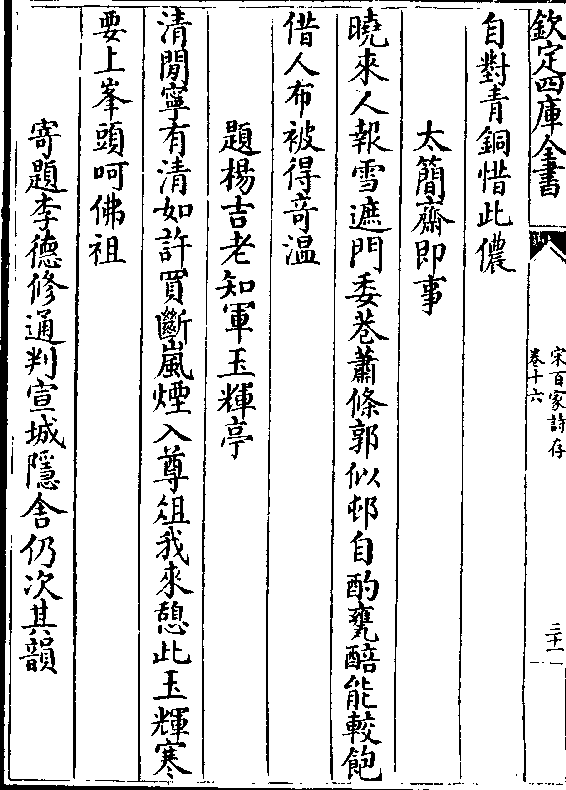 欽定四庫全書
宋百家詩存
卷十六
三十一
自對青銅惜此儂
太簡齋即事
曉來人報雪遮門委巷蕭條郭似邨自酌甕醅能較飽
借人布被得竒温
題楊吉老知軍玉輝亭
清閒寧有清如許買斷嵐煙入尊俎我來憩此玉輝寒
要上峯頭呵佛祖
寄題李德修通判宣城隱舍仍次其韻